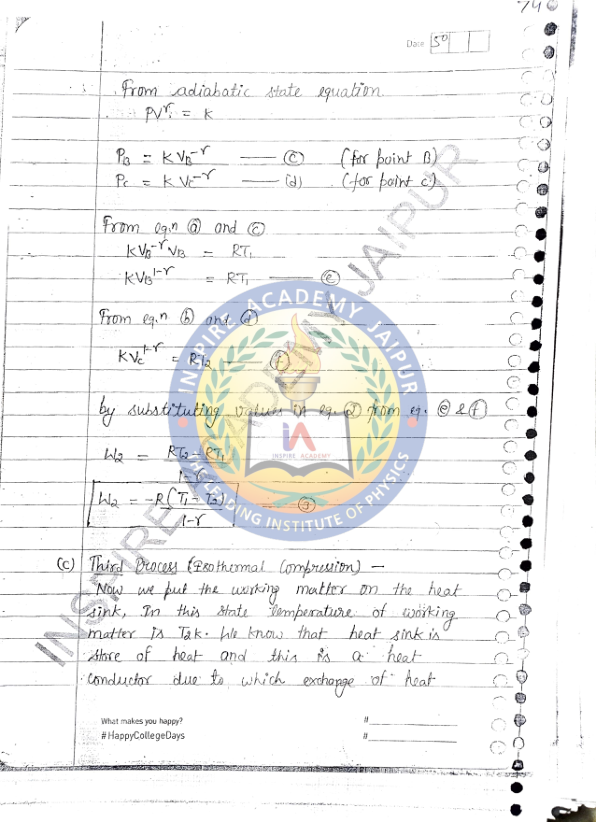 740
Date 50
From adiabatic state equation
PVʳ = K
PB = K VB⁻ʳ —— (c) (for point B)
Pc = K Vc⁻ʳ —— (d) (for point C)
From eq.n (a) and (c)
KVB⁻ʳ VB = RT₁
KVB¹⁻ʳ = RT₁ —— (e)
From eq.n (b) and (d)
KVc¹⁻ʳ = RT₂ —— (f)
by substituting values in eq. (2) from eq. (e) & (f)
W₂ = RT₂ - RT₁
1-r
W₂ = -R(T₁ - T₂) —— (3)
1-r
(C) Third Process (Isothermal Compression) —
Now we put the working matter on the heat
sink, In this state temperature of working
matter is T₂K. We know that heat sink is
store of heat and this is a heat
conductor due to which exchange of heat
What makes you happy?
#HappyCollegeDays
#
#
INSPIRE ACADEMY JAIPUR
INSPIRE ACADEMY JAIPUR
iA
INSPIRE ACADEMY
LEADING INSTITUTE OF PHYSICS